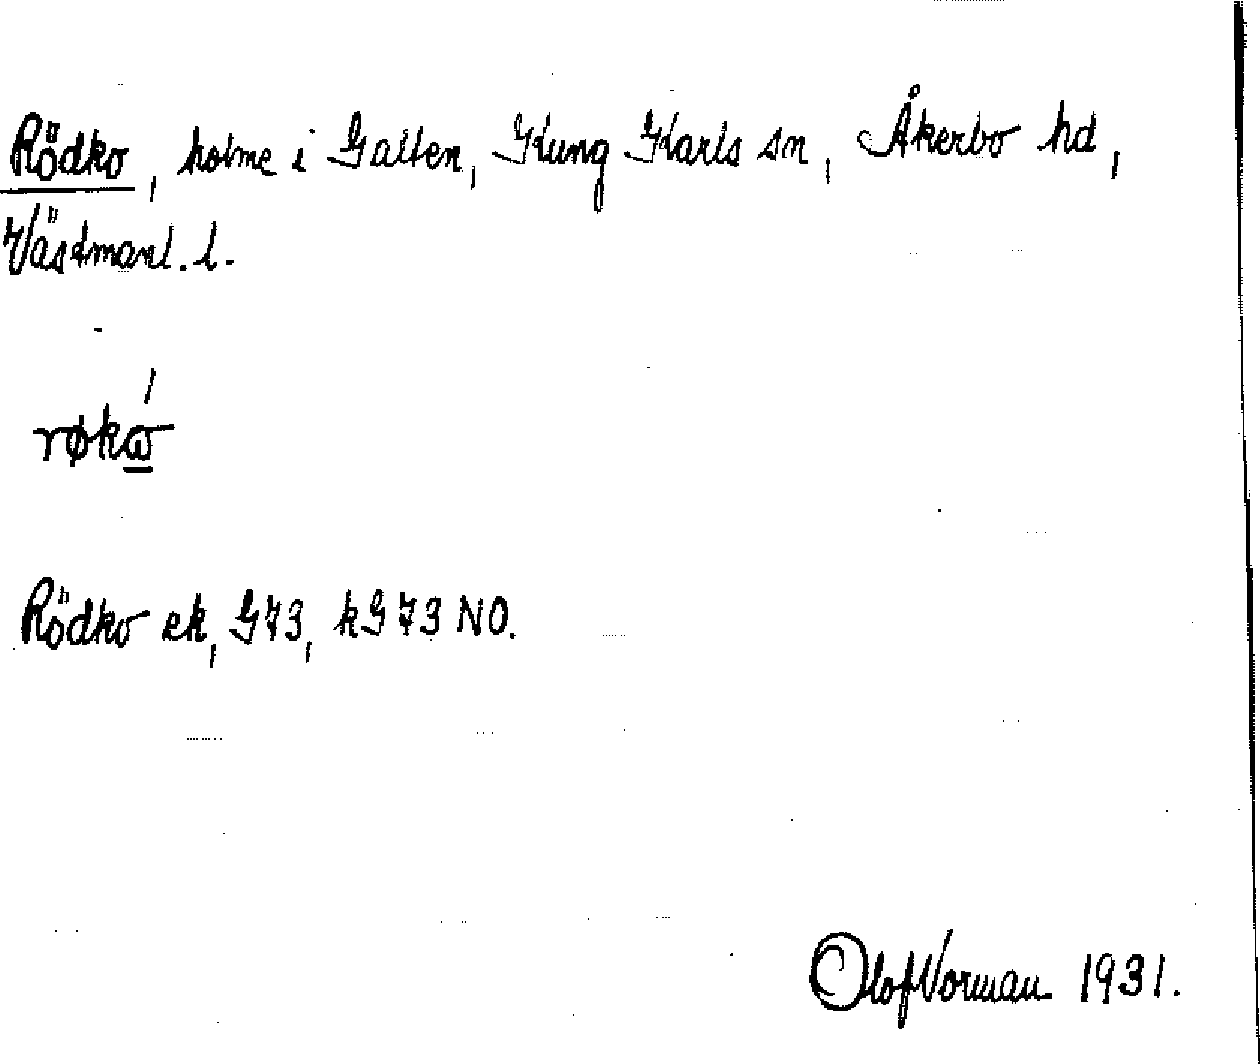 Rödko, holme i Galten, Kung Karls sn, Åkerbo hd,
Västmanl. l.
røkώ̲
Rödko ek, G73, kG73 NO.
Olof Vorman 1931.